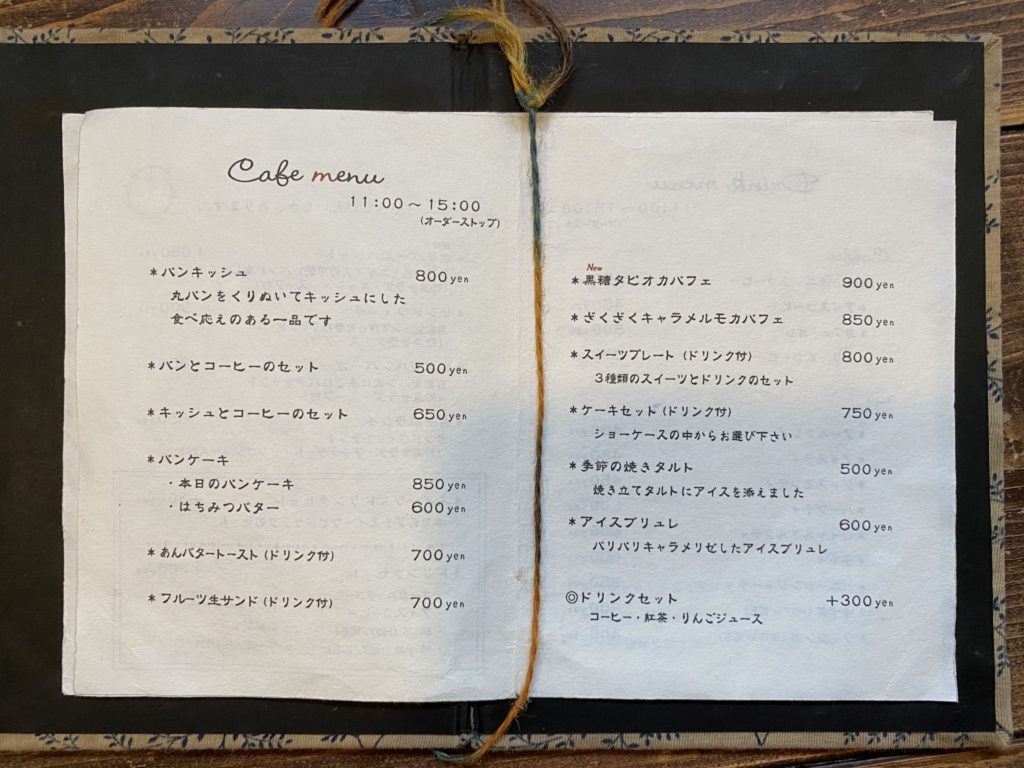 Cafe menu
11:00～15:00
(オーダーストップ)
*パンキッシュ 800yen
丸パンをくりぬいてキッシュにした
食べ応えのある一品です
*パンとコーヒーのセット 500yen
*キッシュとコーヒーのセット 650yen
*パンケーキ
・本日のパンケーキ 850yen
・はちみつバター 600yen
*あんバタートースト(ドリンク付) 700yen
*フルーツ生サンド(ドリンク付) 700yen
New
*黒糖タピオカパフェ 900yen
*ざくざくキャラメルモカパフェ 850yen
*スイーツプレート(ドリンク付) 800yen
3種類のスイーツとドリンクのセット
*ケーキセット(ドリンク付) 750yen
ショーケースの中からお選び下さい
*季節の焼きタルト 500yen
焼き立てタルトにアイスを添えました
*アイスブリュレ 600yen
パリパリキャラメリゼしたアイスブリュレ
◎ドリンクセット +300yen
コーヒー・紅茶・りんごジュース